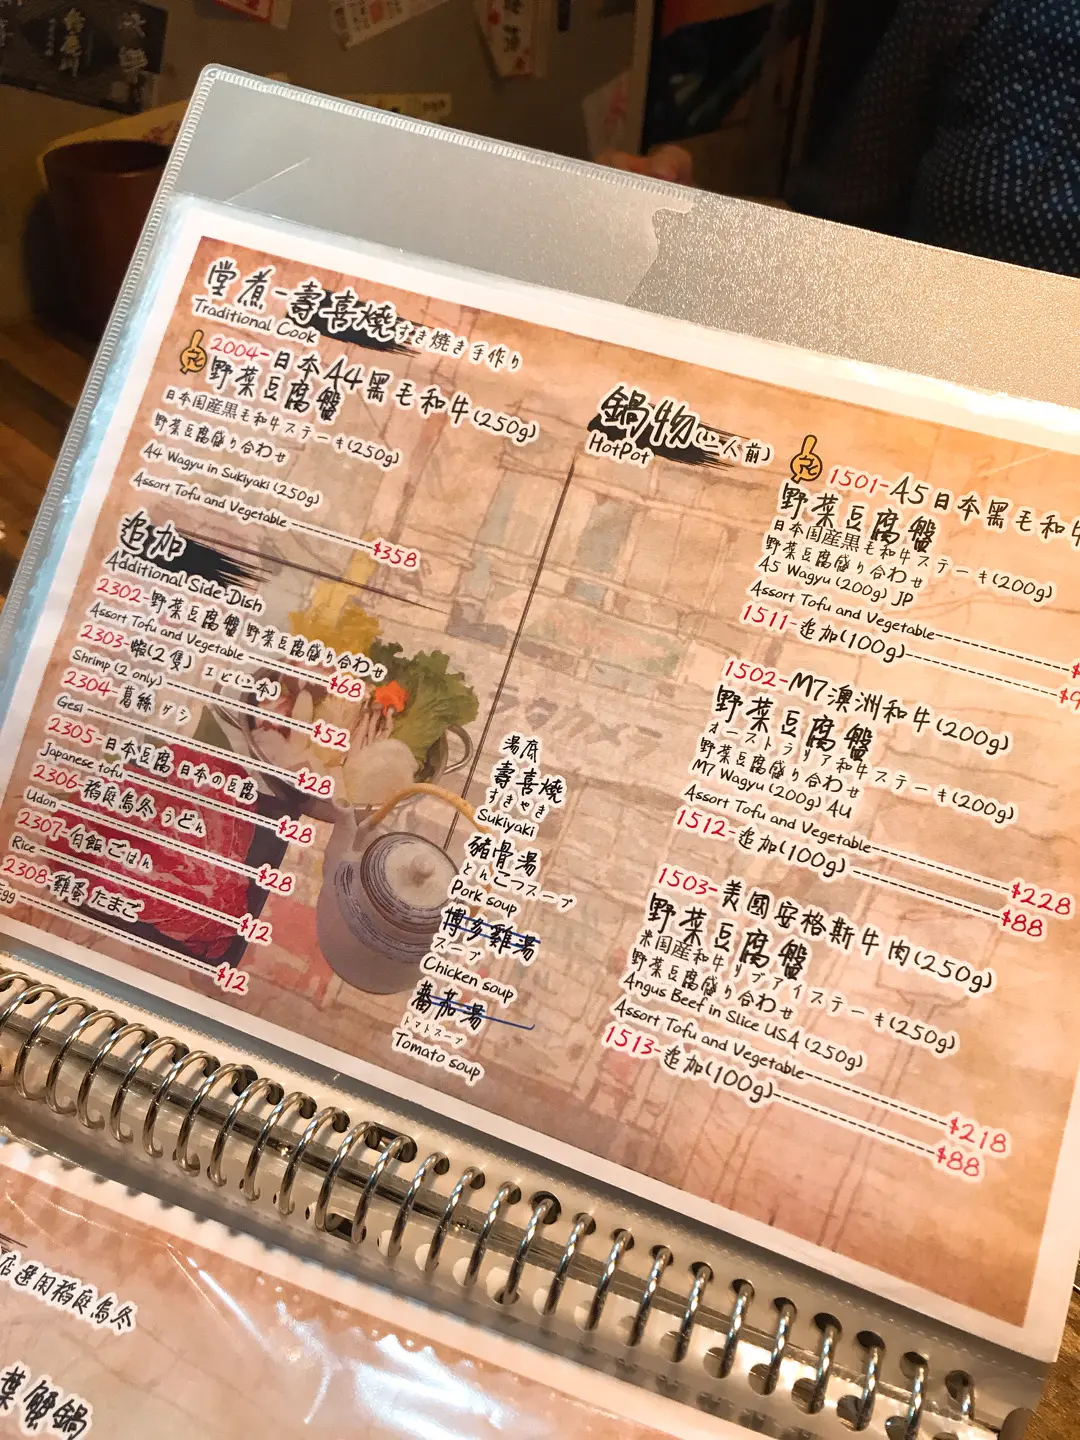 堂煮-壽喜燒すき焼き手作り
Traditional Cook
2004-日本A4黑毛和牛(250g)
野菜豆腐盤
日本国産黒毛和牛ステーキ(250g)
野菜豆腐盛り合わせ
A4 Wagyu in Sukiyaki (250g)
Assort Tofu and Vegetable $358
追加
Additional Side-Dish
2302-野菜豆腐盤 野菜豆腐盛り合わせ
Assort Tofu and Vegetable $68
2303-蝦(2隻) エビ(二本)
Shrimp (2 only) $52
2304-葛絲 ゲシ
Gesi $28
2305-日本豆腐 日本の豆腐
Japanese tofu $28
2306-稻庭烏冬 うどん
Udon $28
2307-白飯 ごはん
Rice $12
2308-雞蛋 たまご
Egg $12
湯底
壽喜燒
すきやき
Sukiyaki
豬骨湯
とんこつスープ
Pork soup
博多雞湯
スープ
Chicken soup
蕃茄湯
トマトスープ
Tomato soup
鍋物(二人前)
HotPot
1501-A5日本黑毛和牛
野菜豆腐盤
日本国産黒毛和牛ステーキ(200g)
野菜豆腐盛り合わせ
A5 Wagyu (200g) JP
Assort Tofu and Vegetable
1511-追加(100g)
1502-M7澳洲和牛(200g)
野菜豆腐盤
オーストラリア和牛ステーキ(200g)
野菜豆腐盛り合わせ
M7 Wagyu (200g) AU
Assort Tofu and Vegetable $228
1512-追加(100g) $88
1503-美國安格斯牛肉(250g)
野菜豆腐盤
米国産和牛リブアイステーキ(250g)
野菜豆腐盛り合わせ
Angus Beef in Slice USA (250g)
Assort Tofu and Vegetable $218
1513-追加(100g) $88
店選用稻庭烏冬
葉蟹鍋